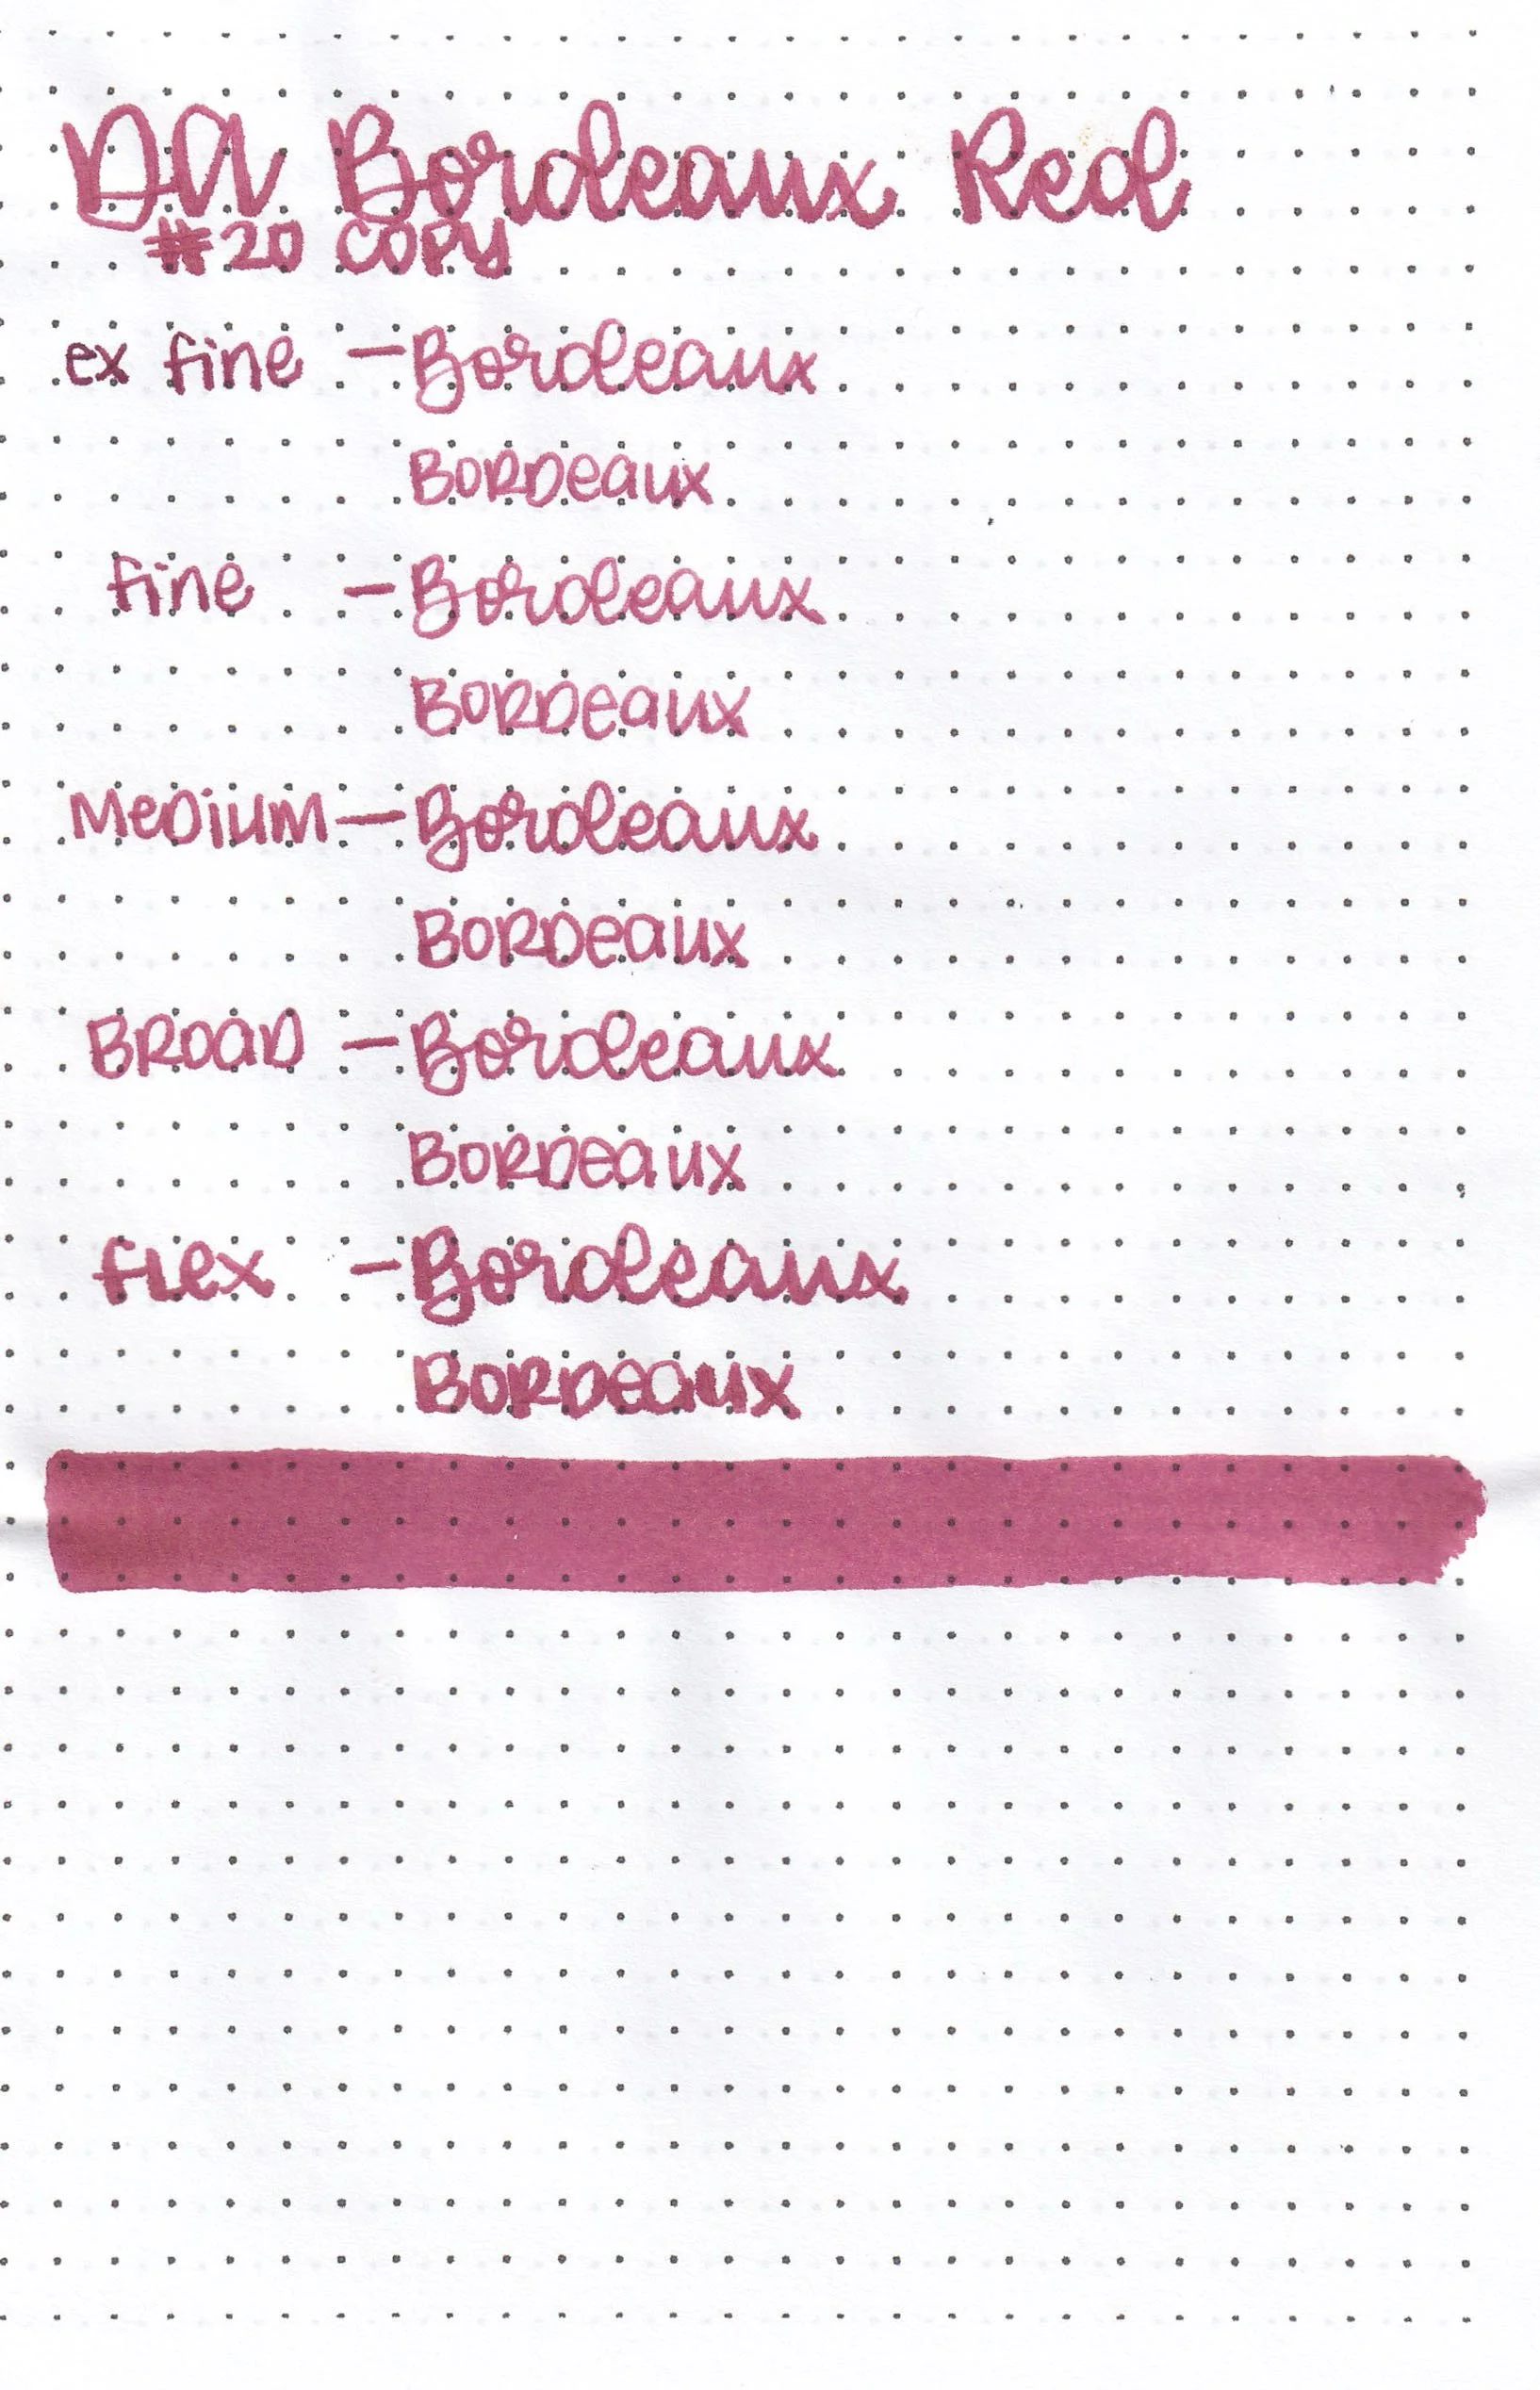 DA Bordeaux Red
#20 COPY
ex fine - Bordeaux
BORDeaux
fine - Bordeaux
BORDeaux
MeDium - Bordeaux
BORDeaux
BROaD - Bordeaux
BORDeaux
fLex - Bordeaux
BORDeaux